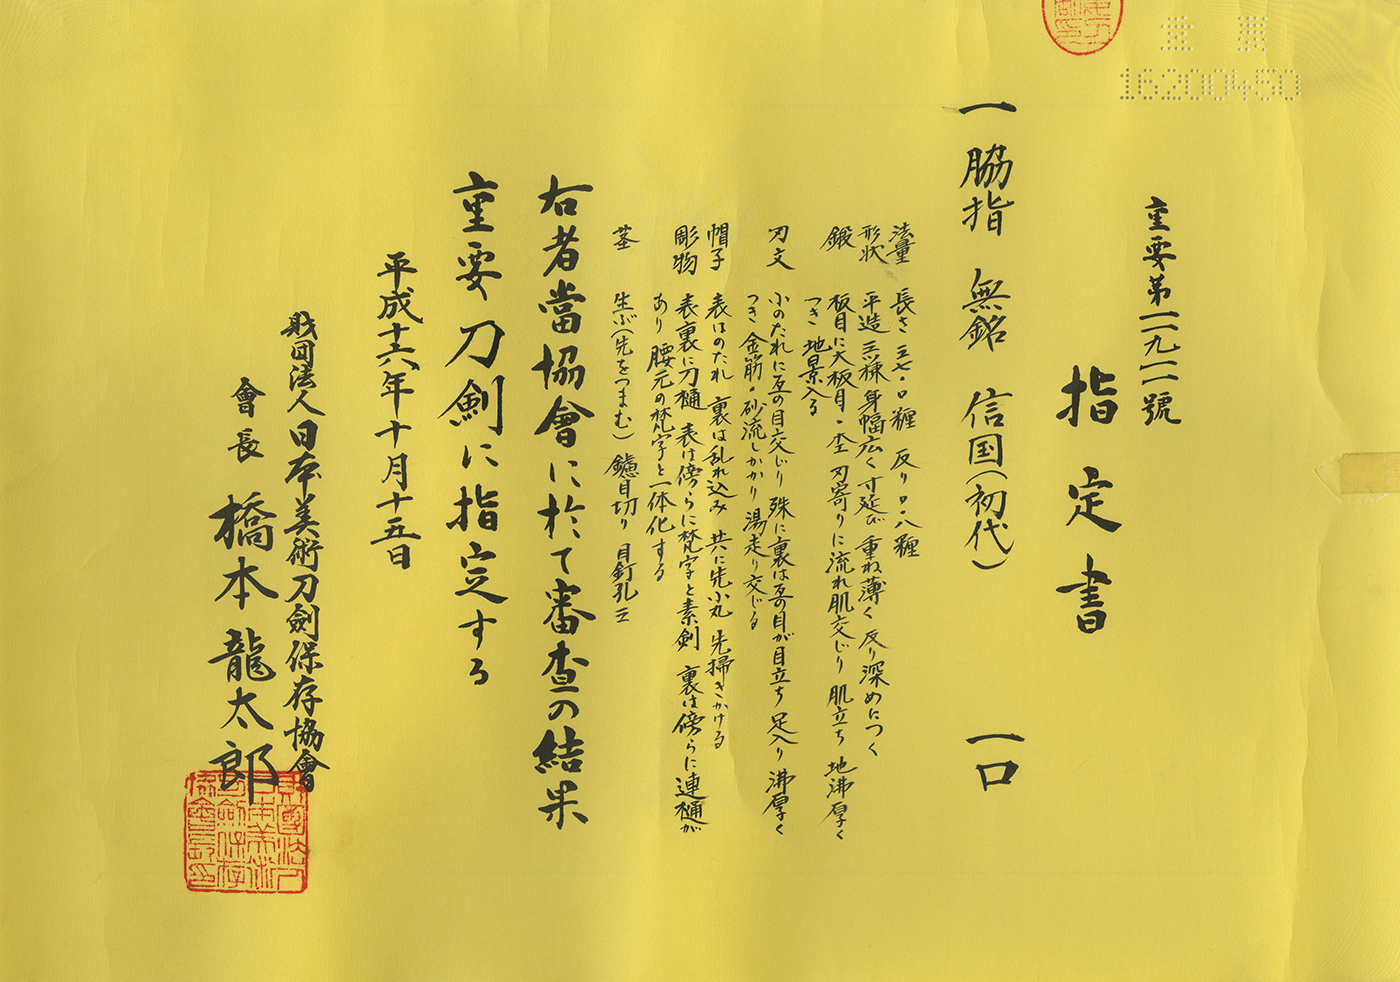 16200450
重要第一一九一一號
指定書
一 脇指 無銘 信国(初代) 一口
法量 長さ 三七・〇糎 反り〇・八糎
形状 平造 三ツ棟 身幅広く 寸延び 重ね薄く 反り深めにつく
鍛 板目に大板目・杢 刃寄りに流れ肌交じり 肌立ち 地沸厚く
つき 地景入る
刃文 小のたれに互の目交じり 殊に裏は互の目が目立ち 足入り 沸厚く
つき 金筋・砂流しかかり 湯走り交じる
帽子 表はのたれ 裏は乱れ込み 共に先小丸 先掃きかける
彫物 表裏に刀樋 表は傍らに梵字と素剣 裏は傍らに連樋が
あり 腰元の梵字と一体化する
茎 生ぶ(先をつまむ) 鑢目切り 目釘孔三
右者當協會に於て審査の結果
重要刀剣に指定する
平成十六年十月十五日
財団法人日本美術刀劍保存協會
會長 橋本龍太郎